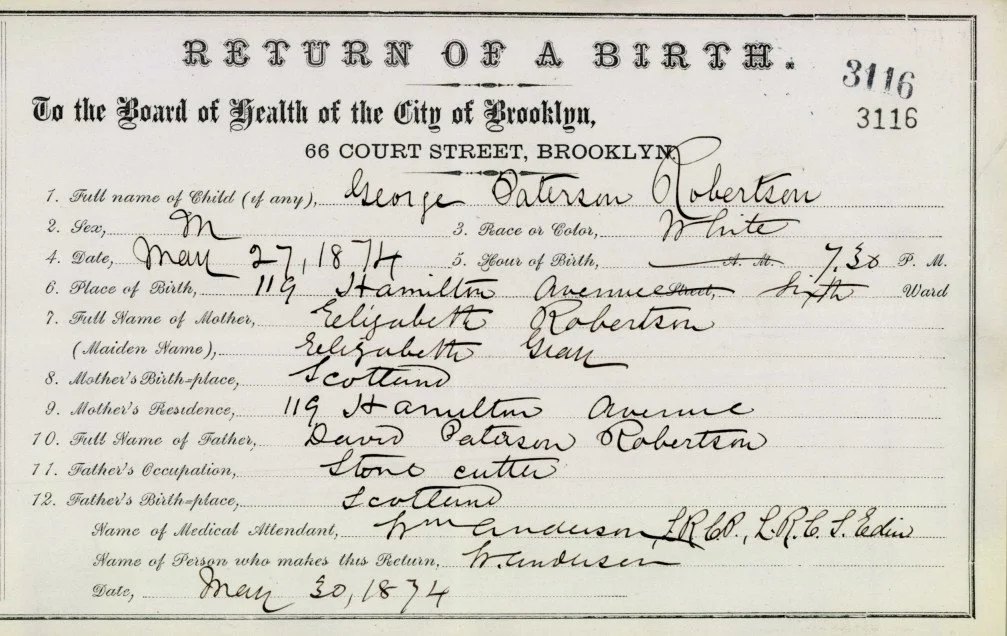 RETURN OF A BIRTH.
3116
To the Board of Health of the City of Brooklyn,
3116
66 COURT STREET, BROOKLYN.
1. Full name of Child (if any), George Paterson Robertson
2. Sex, M 3. Race or Color, White
4. Date, May 27, 1874 5. Hour of Birth, A. M. 7.30 P. M.
6. Place of Birth, 119 Hamilton Avenue Street, Sixth Ward
7. Full Name of Mother, Eelizabeth Robertson
(Maiden Name), Eelizabeth Gray
8. Mother's Birth=place, Scotland
9. Mother's Residence, 119 Hamilton Avenue
10. Full Name of Father, David Paterson Robertson
11. Father's Occupation, Stone cutter
12. Father's Birth=place, Scotland
Name of Medical Attendant, Wm Anderson, L.R.C.P., L.R.C.S. Edin
Name of Person who makes this Return, W. Anderson
Date, May 30, 1874